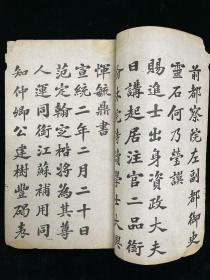 前都察院左副都御史
靈石何乃瑩譔
賜進士出身資政大夫
日講起居注官二品銜
翰林院侍讀學士大興
惲毓鼎書
宣統二年二月二十日
范定翰定楷將為其尊
人運同銜江蘇補用同
知仲卿公建樹豐碣表